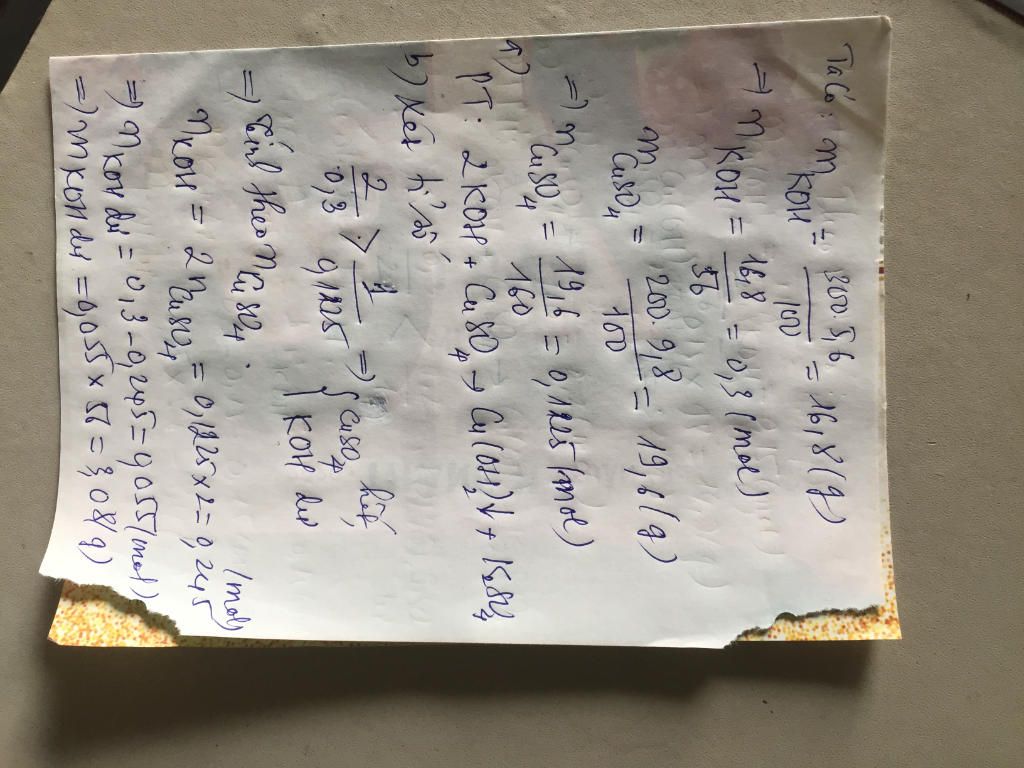 Ta có: mKOH = 300.5,6/100 = 16,8(g)
=) nKOH = 16,8/56 = 0,3(mol)
mCuSO4 = 200.9,8/100 = 19,6(g)
=) nCuSO4 = 19,6/160 = 0,1225(mol)
PT: 2KOH + CuSO4 → Cu(OH)2↓ + K2SO4
b) Xét
2/0,3 > 1/0,1225 =) { CuSO4 hết, KOH dư
=) Tính theo nCuSO4.
nKOH = 2nCuSO4 = 0,1225×2 = 0,245 (mol)
=) nKOH dư = 0,3 - 0,245 = 0,055(mol)
=) mKOH dư = 0,055 × 56 = 3,08(g)